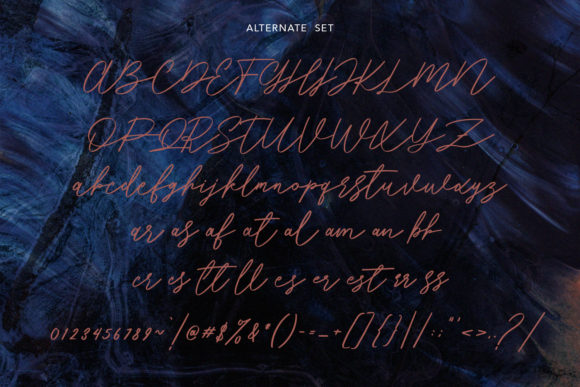 ALTERNATE SET
ABCDEFGHIJKLMN
OPQRSTUVWXYZ
abcdefghijklmnopqrstuvwxyz
ar as af at al am an bb
cr cs tt ll es er est rr ss
0123456789~`!@#$%&*()-=_+[]{}||:;"'<>..?/